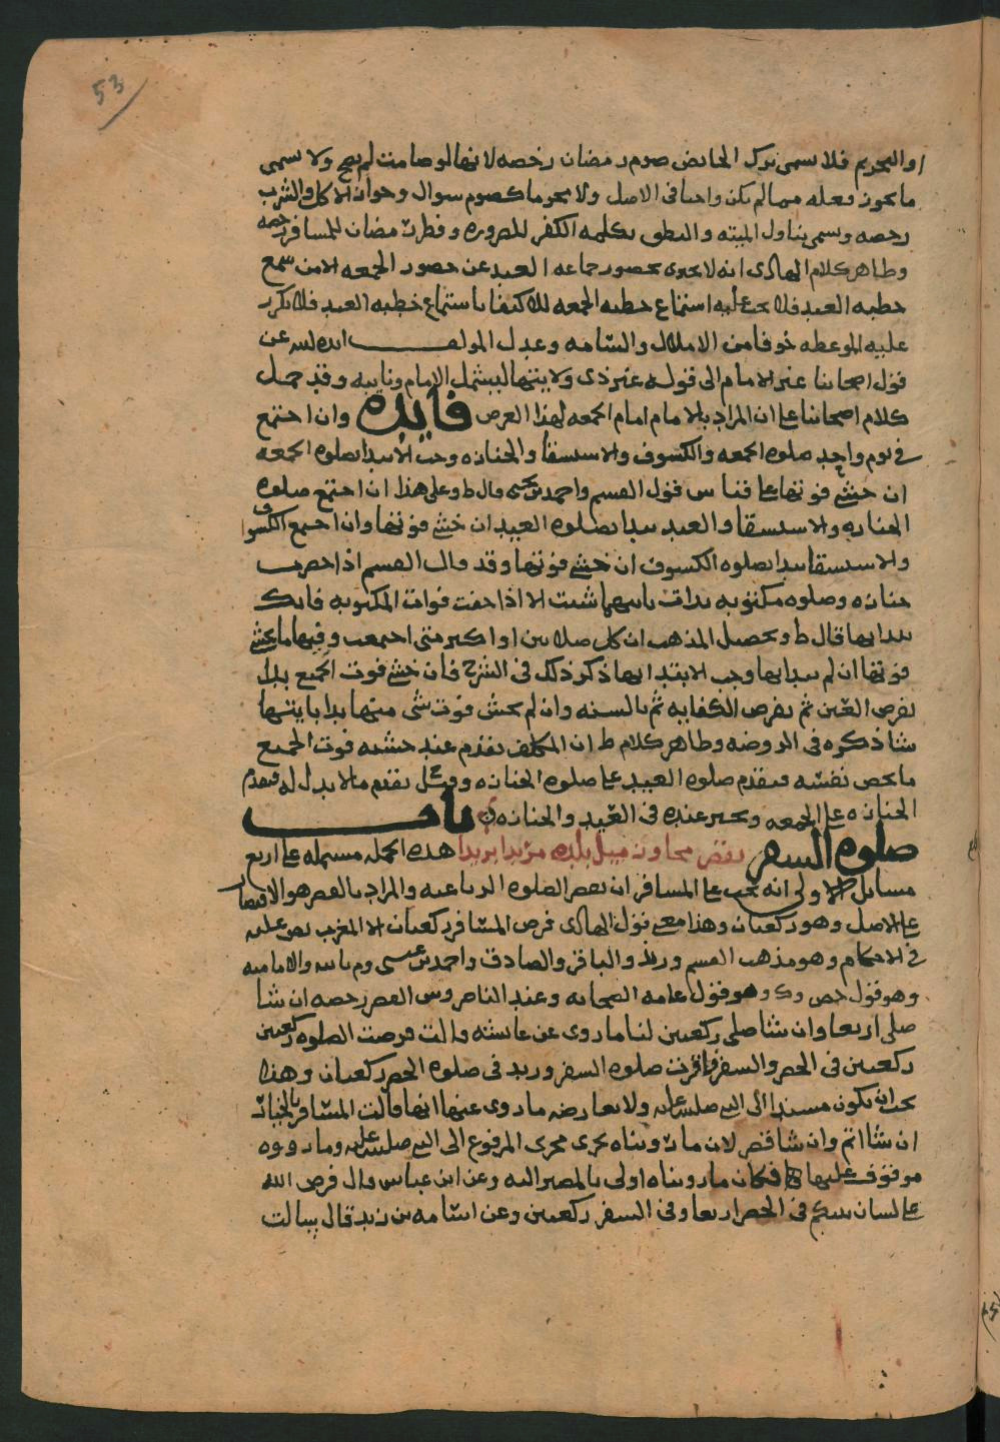 53
او التحريم فلا يسمى ترك الحائض صوم رمضان رخصه لانها لو صامت لم يصح ولا يسمى
ما يجوز فعله مما لم يكن واجبا في الاصل ولا محرما كصوم شوال وجواز الاكل والشرب
رخصه ويسمى تناول الميته والنطق بكلمه الكفر للضروره وفطر رمضان للمسافر رخصه
وظاهر كلام الهادى انه لا يجزى بحضور جماعه العيد عن حضور الجمعه الا من سمع
خطبه العيد فلا يجب عليه استماع خطبه الجمعه للاكتفا باستماع خطبه العيد فلا تكرر
عليه الموعظه خوفا من الاملال والسامه وعدل المولف ايده الله عن
قول اصحابنا غير الامام الى قوله غير ذى ولايتها ليشمل الامام ونايبه وقد حمل
كلام اصحابنا على ان المراد بالامام امام الجمعه لهذا الغرض فايده وان اجتمع
في يوم واحد صلوه الجمعه والكسوف والاستسقا والجنازه وجب الابتدا بصلوه الجمعه
ان خشي فوتها على قياس قول القسم واحمد بن يحيى قال ط وعلى هذا ان اجتمع صلوه
الجنازه والاستسقا والعيد يبدا بصلوه العيد ان خشي فوتها وان اجتمع الكسوف
والاستسقا يبدا بصلوه الكسوف ان خشي فوتها وقد قال القسم اذا حضرت
جنازه وصلوه مكتوبه بدات بايهما شئت الا اذا خفت فوات المكتوبه فانك
تبدا بها قال ط وتحصيل المذهب ان كل صلاتين او اكثر متى اجتمعت وفيها ما يخشى
فوتها ان لم يبدا بها وجب الابتدا بها ذكر ذلك في الشرح فان خشي فوت الجميع بدا
بفرض العين ثم بفرض الكفايه ثم بالسنه وان لم يخش فوت شي منها بدا بايتها
شا ذكره في الروضه وظاهر كلام ط ان المكلف يقدم عند خشيه فوت الجميع
ما يخص نفسه فيقدم صلوه العيد على صلوه الجنازه وقيل يقدم ما لا بدل له فيقدم
الجنازه على الجمعه ويخير عنده في العيد والجنازه باب
صلوه السفر يقصر مجاوز ميل بلده مريدا بريدا هذه الجمله مشتمله على اربع
مسايل الاولى انه يجب على المسافر ان يقصر الصلوه الرباعيه والمراد بالقصر هو الاقتصار
على الاصل وهو ركعتان وهذا معنى قول الهادى فرض المسافر ركعتان الا المغرب نص عليه
في الاحكام وهو مذهب القسم وزيد والباقر والصادق واحمد بن عيسى وم بالله والاماميه
وهو قول حص وك وهو قول عامه الصحابه وعند الناصر وش القصر رخصه ان شا
صلى اربعا وان شا صلى ركعتين لنا ما روى عن عايشه قالت فرضت الصلوه ركعتين
ركعتين في الحضر والسفر فاقرت صلوه السفر وزيد في صلوه الحضر ركعتان وهذا
يجب ان يكون مسندا الى النبي صلى الله عليه ولا يعارضه ما روى عنها انها قالت المسافر بالخيار
ان شا اتم وان شا قصر لان ما رويناه يجرى مجرى المرفوع الى النبي صلى الله عليه وما رووه
موقوف عليها فكان ما رويناه اولى بالمصير اليه وعن ابن عباس قال فرض الله
على لسان نبيكم في الحضر اربعا وفي السفر ركعتين وعن اسامه بن زيد قال سالت